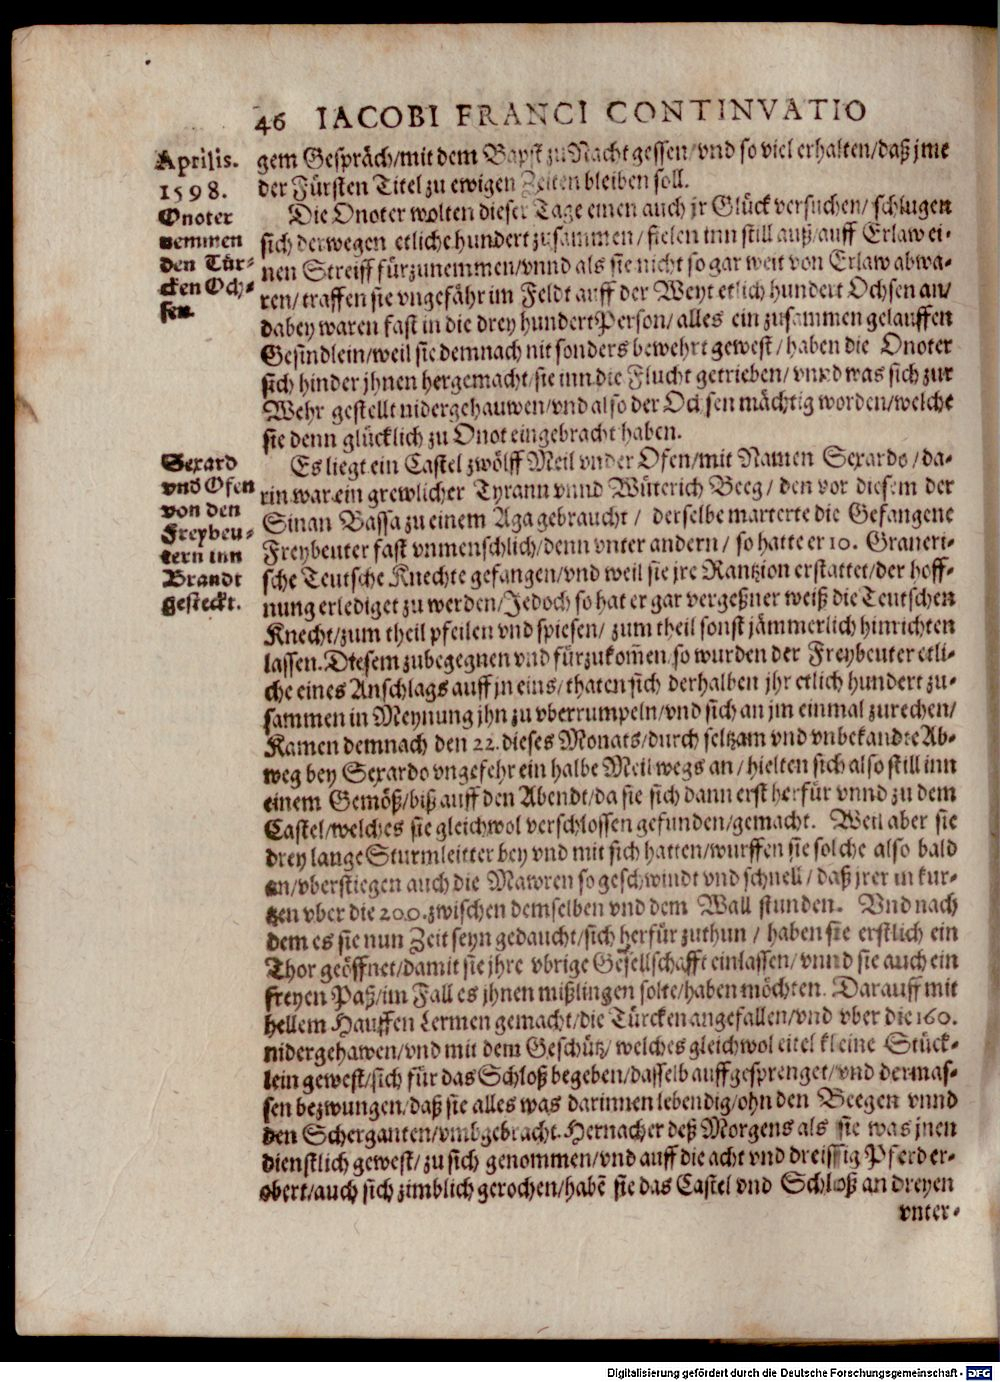 46 IACOBI FRANCI CONTINVATIO
Aprilis.
1598.
gem Gespräch/mit dem Bapst zu Nacht gessen/vnd so viel erhalten/daß jme
der Fürsten Titel zu ewigen Zeiten bleiben soll.
Onoter
nemmen
den Tür-
cken Och-
sen.
Die Onoter wolten dieser Tage einen auch jr Glück versuchen/ schlugen
sich derwegen etliche hundert zusammen/ fielen inn still auß/auff Erlaw ei-
nen Streiff fürzunemmen/vnnd als sie nicht so gar weit von Erlaw abwa-
ren/ traffen sie vngefähr im Feldt auff der Weyt etlich hundert Ochsen an/
dabey waren fast in die drey hundert Person/ alles ein zusammen gelauffen
Gesindlein/weil sie demnach nit sonders bewehrt gewest/ haben die Onoter
sich hinder jhnen hergemacht/sie inn die Flucht getrieben/ vnnd was sich zur
Wehr gestellt nidergehauwen/vnd also der Ochsen mächtig worden/welche
sie denn glücklich zu Onot eingebracht haben.
Sexard
vnd Ofen
von den
Freybeu-
tern inn
Brandt
gesteckt.
Es liegt ein Castel zwölff Meil vnder Ofen/mit Namen Sexardo/da-
rin war ein grewlicher Tyrann vnnd Wüterich Beeg/ den vor diesem der
Sinan Bassa zu einem Aga gebraucht/ derselbe marterte die Gefangene
Freybeuter fast vnmenschlich/denn vnter andern/ so hatte er 10. Graneri-
sche Teutsche Knechte gefangen/vnd weil sie jre Rantzion erstattet/der hoff-
nung erlediget zu werden/Jedoch so hat er gar vergeßner weiß die Teutschen
Knecht/zum theil pfeilen vnd spiesen/ zum theil sonst jämmerlich hinrichten
lassen. Diesem zubegegnen vnd fürzukom̃en/so wurden der Freybeuter etli-
che eines Anschlags auff jn eins/thaten sich derhalben jhr etlich hundert zu-
sammen in Meynung jhn zu vberrumpeln/vnd sich an jm einmal zurechen/
Kamen demnach den 22. dieses Monats/durch seltzam vnd vnbekandte Ab-
weg bey Sexardo vngefehr ein halbe Meil wegs an/hielten sich also still inn
einem Gemöß/biß auff den Abendt/da sie sich dann erst herfür vnnd zu dem
Castel/welches sie gleichwol verschlossen gefunden/gemacht. Weil aber sie
drey lange Sturmleitter bey vnd mit sich hatten/wurffen sie solche also bald
an/vberstiegen auch die Mawren so geschwindt vnd schnell/ daß jrer in kur-
tzen vber die 200. zwischen demselben vnd dem Wall stunden. Vnd nach
dem es sie nun Zeit seyn gedaucht/sich herfür zuthun/ haben sie erstlich ein
Thor geöffnet/damit sie jhre vbrige Gesellschafft einlassen/vnnd sie auch ein
freyen Paß/im Fall es jhnen mißlingen solte/haben möchten. Darauff mit
hellem Hauffen Lermen gemacht/die Türcken angefallen/vnd vber die 160.
nidergehawen/vnd mit dem Geschütz/ welches gleichwol eitel kleine Stück-
lein gewest/sich für das Schloß begeben/dasselb auffgesprenget/vnd dermas-
sen bezwungen/daß sie alles was darinnen lebendig/ohn den Beegen vnnd
den Scherganten/vmbgebracht. Hernacher deß Morgens als sie was jnen
dienstlich gewest/zu sich genommen/vnd auff die acht vnd dreissig Pferd er-
obert/auch sich zimblich gerochen/habẽ sie das Castel vnd Schloß an dreyen
vnter-
Digitalisierung gefördert durch die Deutsche Forschungsgemeinschaft - DFG